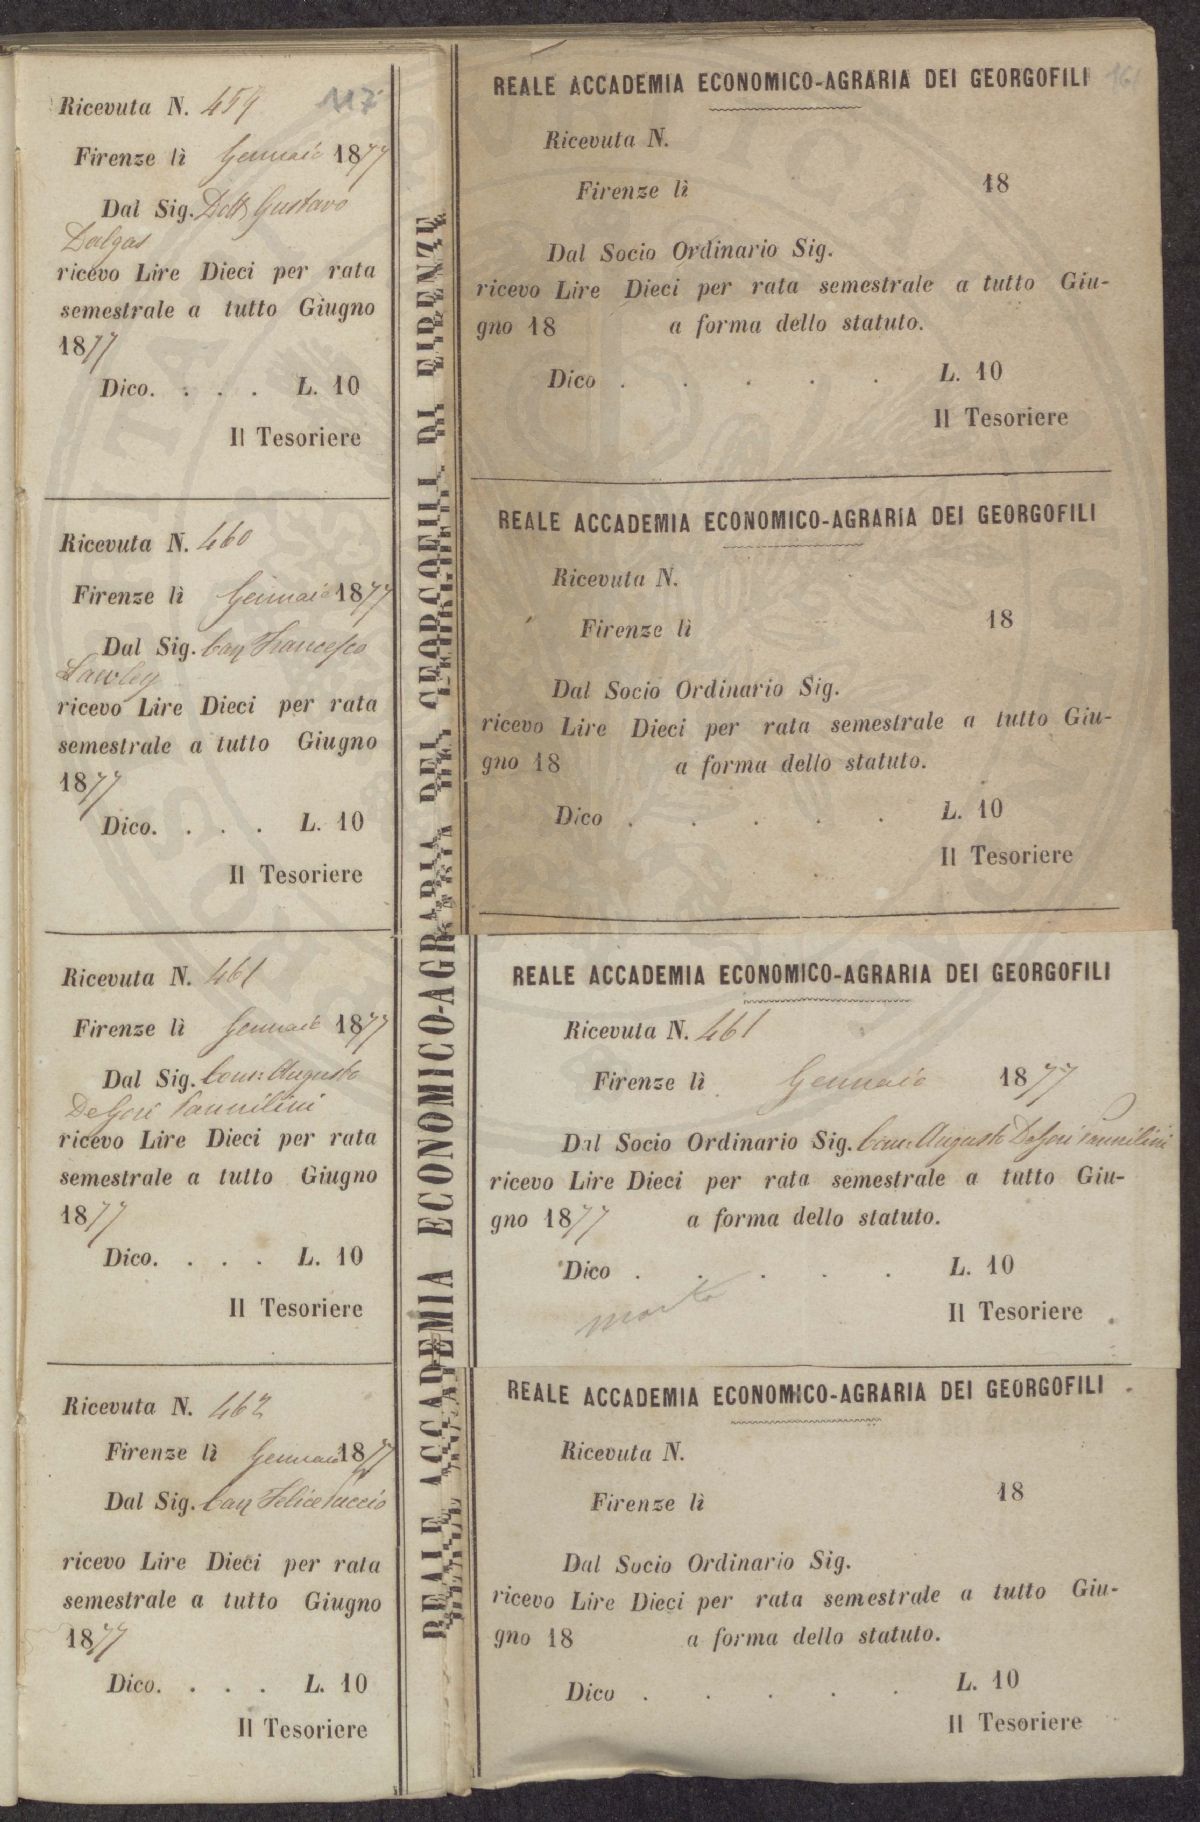 Ricevuta N. 459
117
Firenze lì Gennaio 1877
Dal Sig. Dott Gustavo
Dalgas
ricevo Lire Dieci per rata
semestrale a tutto Giugno
1877
Dico. . . . L. 10
Il Tesoriere
Ricevuta N. 460
Firenze lì Gennaio 1877
Dal Sig. Cav Francesco
Lawley
ricevo Lire Dieci per rata
semestrale a tutto Giugno
1877
Dico. . . . L. 10
Il Tesoriere
Ricevuta N. 461
Firenze lì Gennaio 1877
Dal Sig. Augusto
De Gori Pannilini
ricevo Lire Dieci per rata
semestrale a tutto Giugno
1877
Dico. . . . L. 10
Il Tesoriere
Ricevuta N. 462
Firenze lì Gennaio 1877
Dal Sig. Cav Felice
ricevo Lire Dieci per rata
semestrale a tutto Giugno
1877
Dico. . . . L. 10
Il Tesoriere
REALE ACCADEMIA ECONOMICO-AGRARIA DEI GEORGOFILI DI FIRENZE
REALE ACCADEMIA ECONOMICO-AGRARIA DEI GEORGOFILI
Ricevuta N.
Firenze lì 18
Dal Socio Ordinario Sig.
ricevo Lire Dieci per rata semestrale a tutto Giu-
gno 18 a forma dello statuto.
Dico . . . . . L. 10
Il Tesoriere
REALE ACCADEMIA ECONOMICO-AGRARIA DEI GEORGOFILI
Ricevuta N.
Firenze lì 18
Dal Socio Ordinario Sig.
ricevo Lire Dieci per rata semestrale a tutto Giu-
gno 18 a forma dello statuto.
Dico . . . . . L. 10
Il Tesoriere
REALE ACCADEMIA ECONOMICO-AGRARIA DEI GEORGOFILI
Ricevuta N. 461
Firenze lì Gennaio 1877
Dal Socio Ordinario Sig. Augusto De Gori Pannilini
ricevo Lire Dieci per rata semestrale a tutto Giu-
gno 1877 a forma dello statuto.
Dico . . . . . L. 10
morto
Il Tesoriere
REALE ACCADEMIA ECONOMICO-AGRARIA DEI GEORGOFILI
Ricevuta N.
Firenze lì 18
Dal Socio Ordinario Sig.
ricevo Lire Dieci per rata semestrale a tutto Giu-
gno 18 a forma dello statuto.
Dico . . . . . L. 10
Il Tesoriere